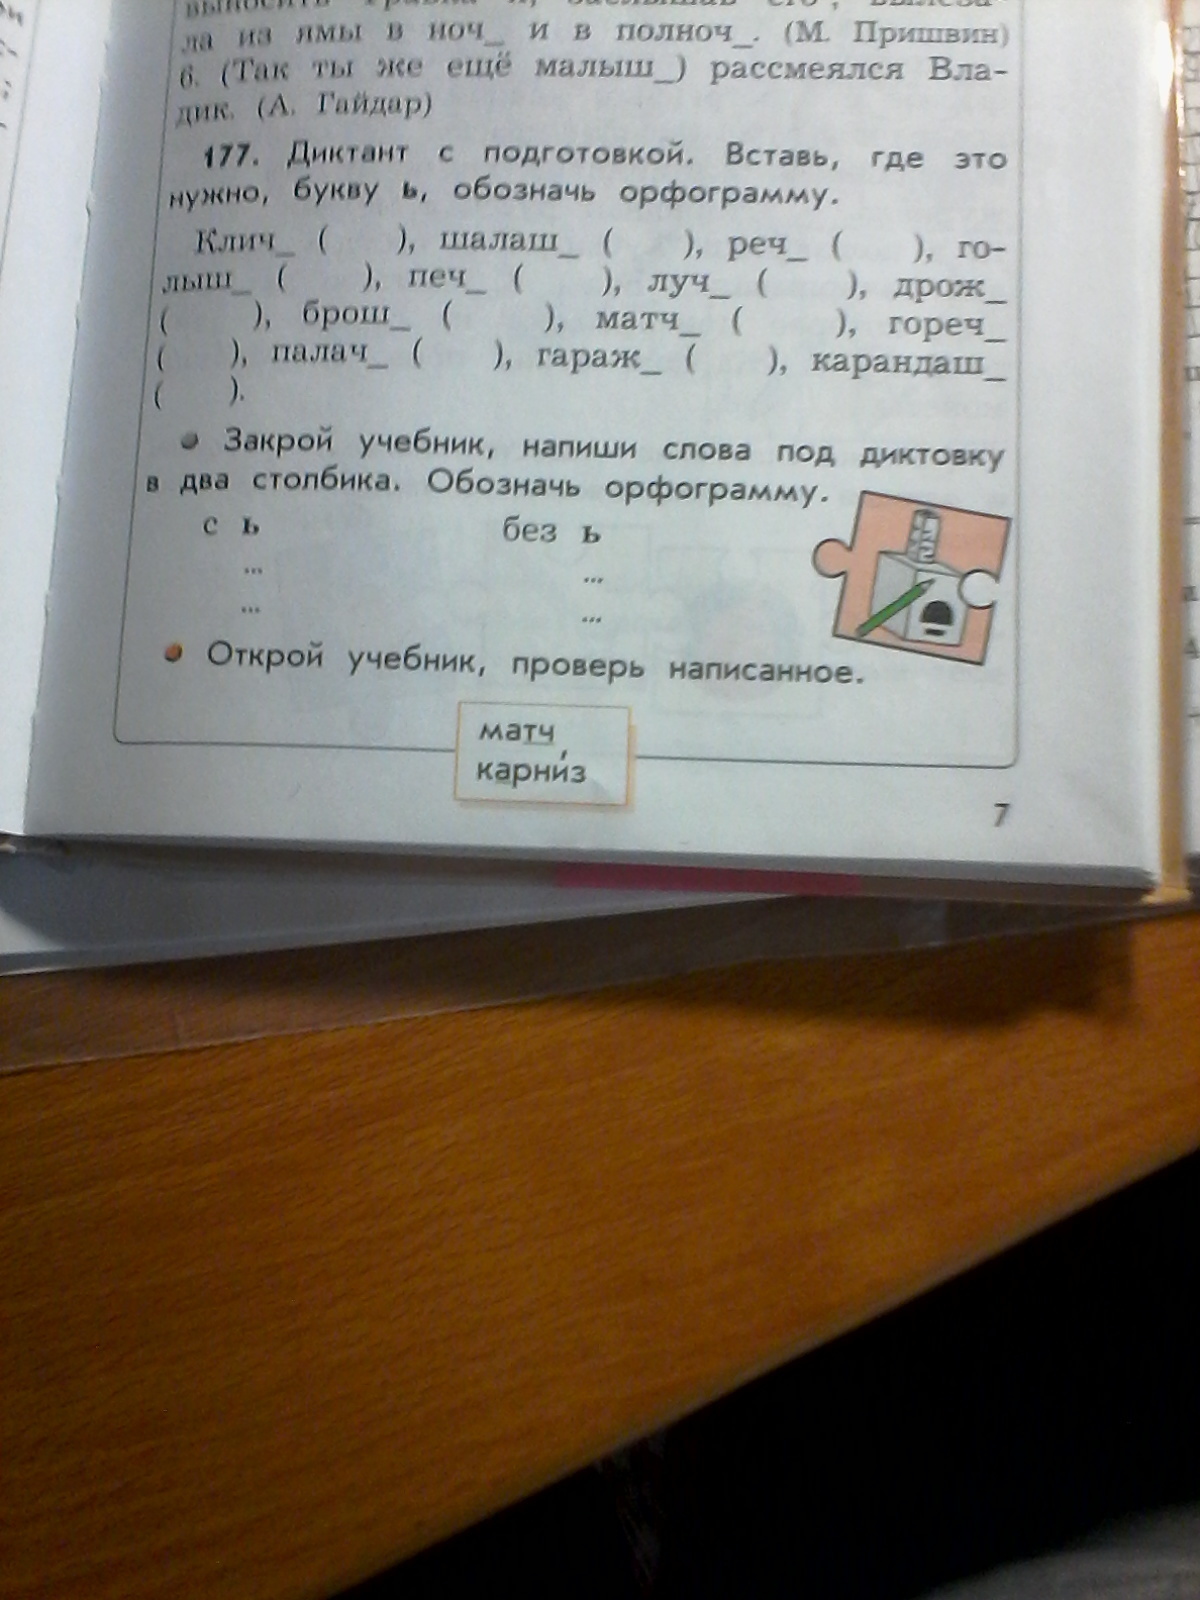 ла из ямы в ноч_ и в полноч_. (М. Пришвин)
6. (Так ты же ещё малыш_) рассмеялся Вла-
дик. (А. Гайдар)
177. Диктант с подготовкой. Вставь, где это
нужно, букву ь, обозначь орфограмму.
Клич_ ( ), шалаш_ ( ), реч_ ( ), го-
лыш_ ( ), печ_ ( ), луч_ ( ), дрож_
( ), брош_ ( ), матч_ ( ), гореч_
( ), палач_ ( ), гараж_ ( ), карандаш_
( ).
Закрой учебник, напиши слова под диктовку
в два столбика. Обозначь орфограмму.
с ь без ь
... ...
... ...
Открой учебник, проверь написанное.
матч
карни́з
7